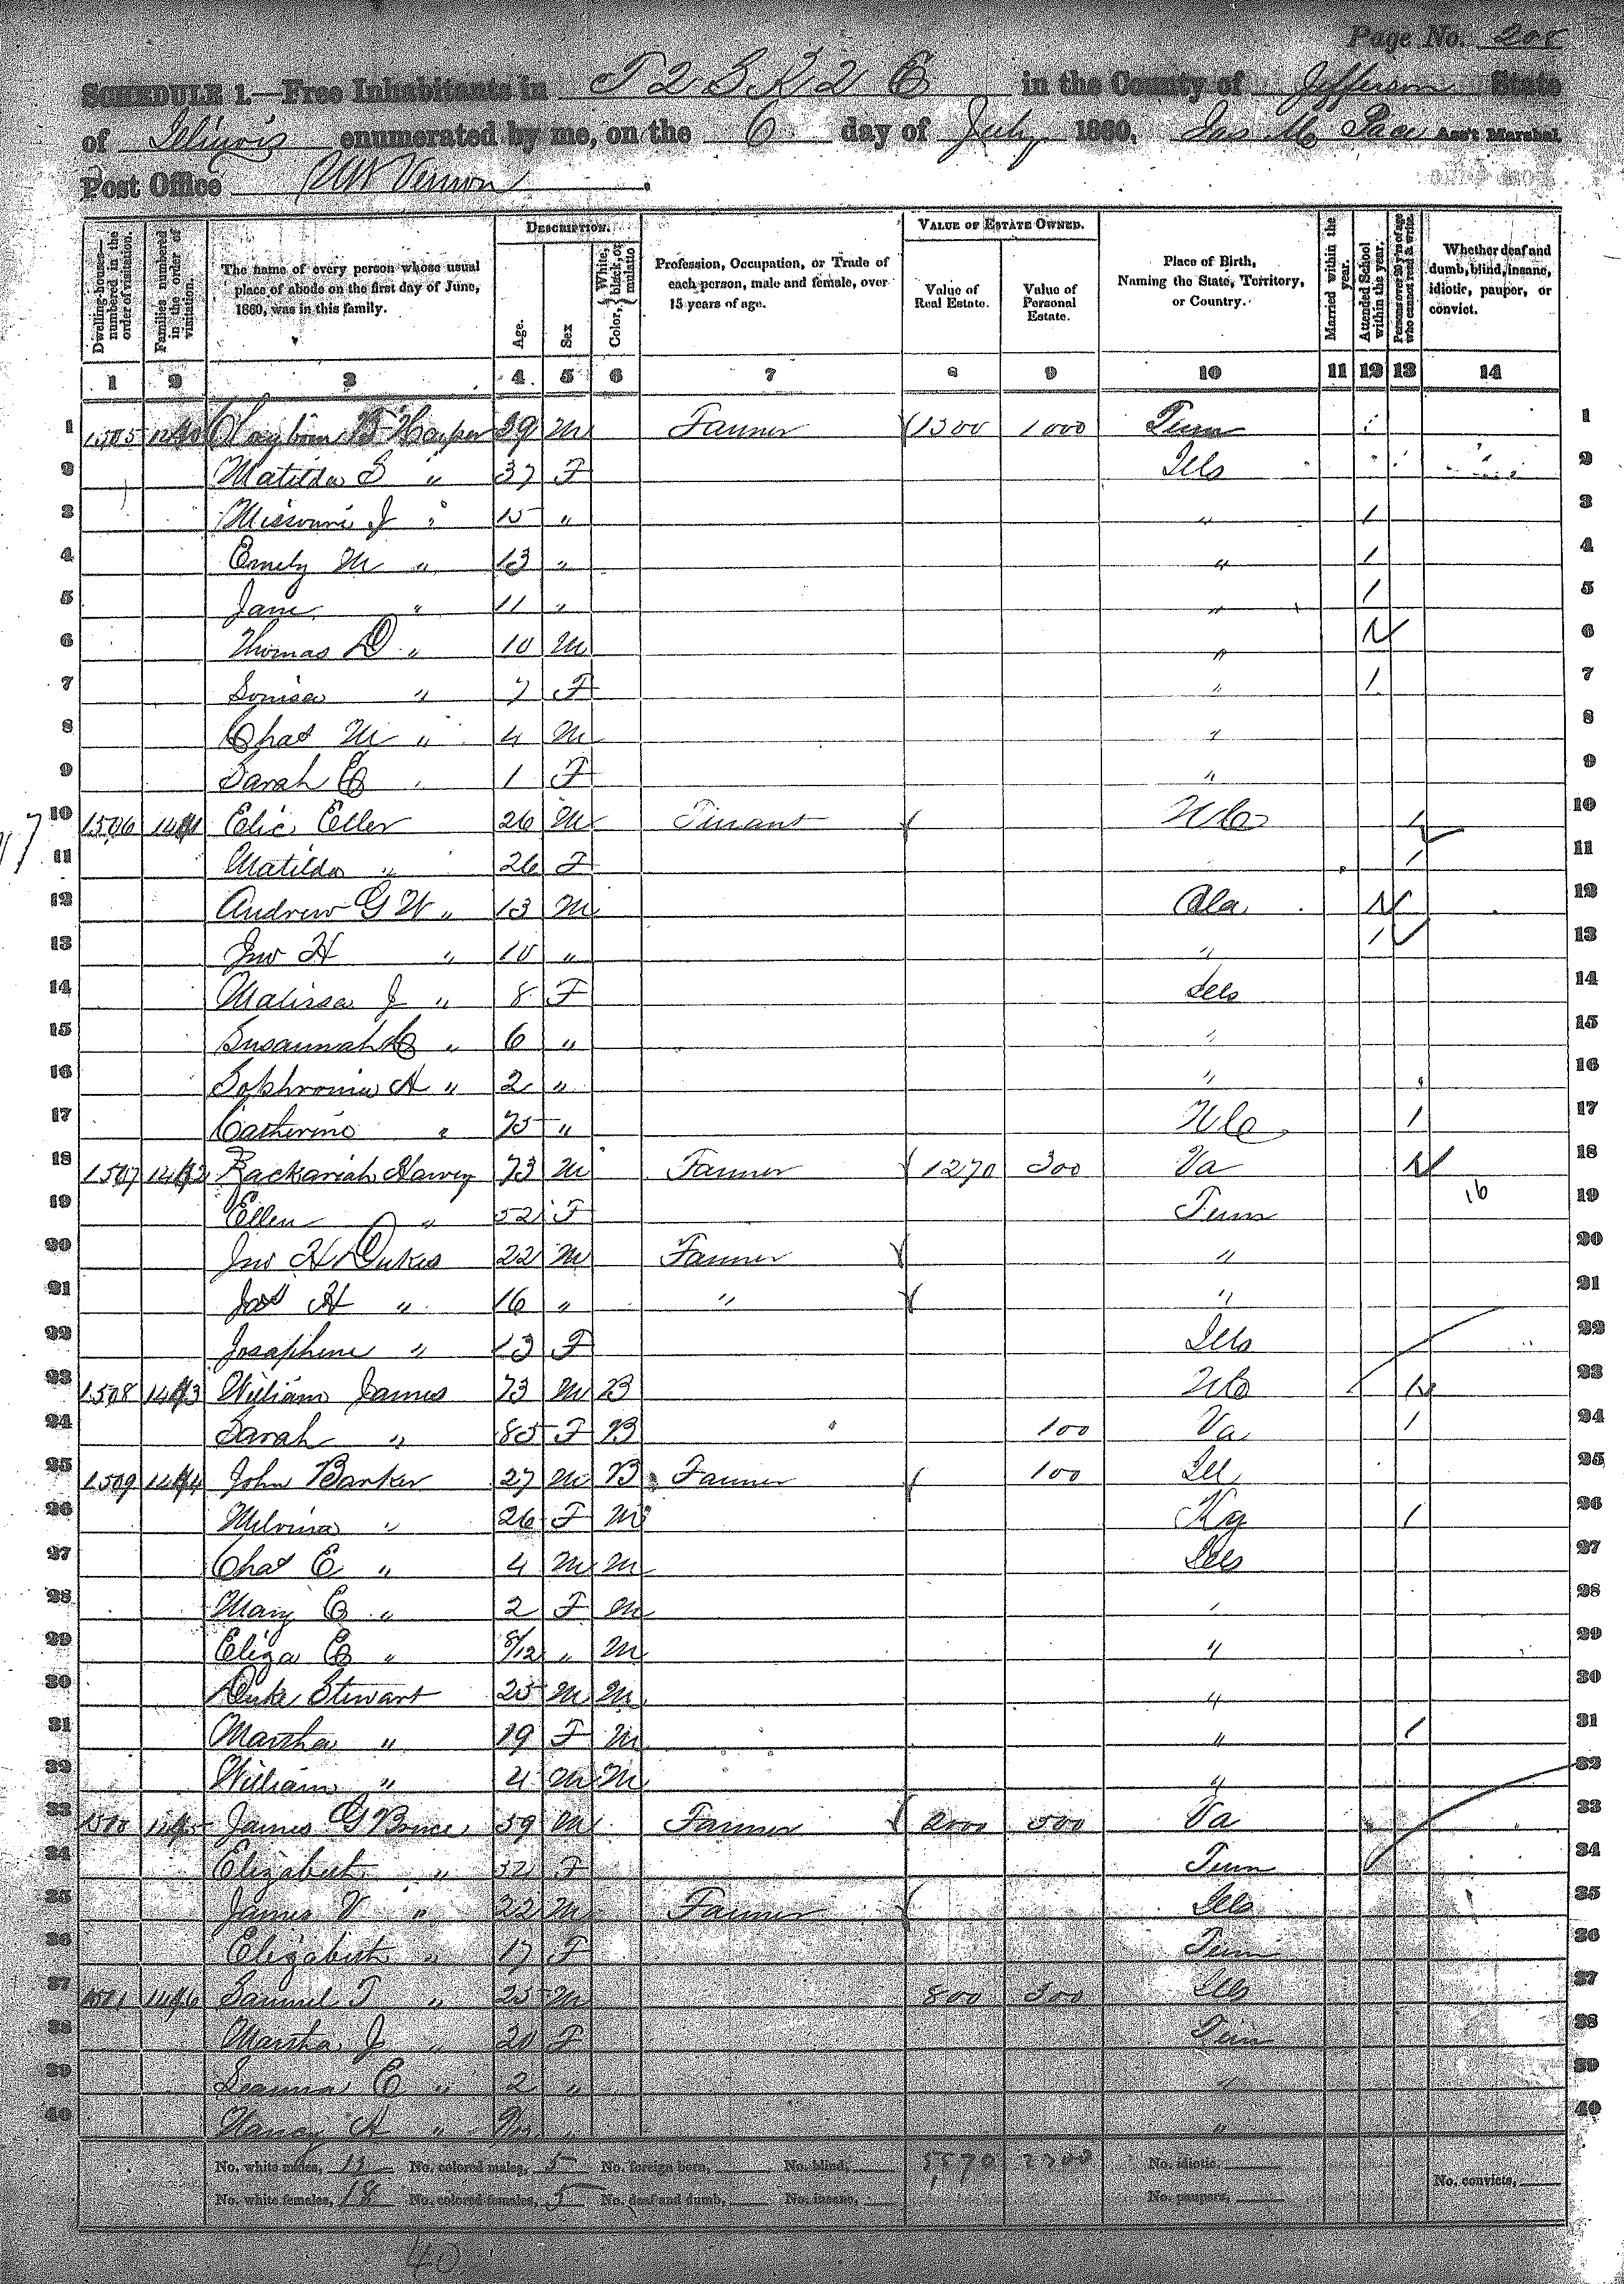 Page No. 208
SCHEDULE 1.—Free Inhabitants in T 2 S R 2 E in the County of Jefferson State
of Illinois enumerated by me, on the 6 day of July 1860. Jas M Pace Ass't Marshal.
Post Office Mt Vernon
Dwelling-houses—numbered in the order of visitation.
Families numbered in the order of visitation.
The name of every person whose usual place of abode on the first day of June, 1860, was in this family.
DESCRIPTION.
Age.
Sex
Color, White, black, or mulatto
Profession, Occupation, or Trade of each person, male and female, over 15 years of age.
VALUE OF ESTATE OWNED.
Value of Real Estate.
Value of Personal Estate.
Place of Birth, Naming the State, Territory, or Country.
Married within the year.
Attended School within the year.
Persons over 20 y'rs of age who cannot read & write.
Whether deaf and dumb, blind, insane, idiotic, pauper, or convict.
1 2 3 4 5 6 7 8 9 10 11 12 13 14
1 1505 Clayborn B Harper 39 M Farmer 1300 1000 Tenn 1
2 Matilda S " 37 F Ills 2
3 Missouri J " 15 " " 1 3
4 Emely M " 13 " " 1 4
5 Jane " 11 " " 1 5
6 Thomas D " 10 M " 1 6
7 Louisa " 7 F " 1 7
8 Chas M " 4 M " 8
9 Sarah E " 1 F " 9
10 1506 1441 Elic Eller 26 M Tinant NC 1 10
11 Matilda " 26 F 1 11
12 Andrew G W " 13 M Ala 1 12
13 Jno H " 10 " " 1 13
14 Malissa J " 8 F Ills 14
15 Susannah C " 6 " " 15
16 Sophronia A " 2 " " 16
17 Catherine " 75 " NC 1 17
18 1507 1442 Zackariah Harvey 73 M Farmer 1270 300 Va 1 18
19 Ellen " 52 F Tenn 16 19
20 Jno H Dukes 22 M Farmer " 20
21 Jas H " 16 " " " 21
22 Josaphine " 13 F Ills 22
23 1508 1443 William James 73 M B NC 1 23
24 Sarah " 85 F B 100 Va 1 24
25 1509 1444 John Barker 27 M B Farmer 100 Ill 25
26 Melvina " 26 F M Ky 1 26
27 Chas E " 4 M M Ills 27
28 Mary E " 2 F M " 28
29 Eliza E " 8/12 " M " 29
30 Duke Stewart 25 M M " 30
31 Martha " 19 F M " 1 31
32 William " 4 M M " 32
33 1510 1445 James G Bruce 59 M Farmer 2000 500 Va 33
34 Elizabeth " 52 F Tenn 34
35 James V " 22 M Farmer Ills 35
36 Elizabeth " 17 F Tenn 36
37 1511 1446 Samuel T " 25 M 800 300 Ills 37
38 Martha J " 20 F Tenn 38
39 E " 2 " " 39
40 Nancy A " " " 40
No. white males, 12 No. colored males, 5 No. foreign born, No. blind, 5570 2300 No. idiotic,
No. white females, 18 No. colored females, 5 No. deaf and dumb, No. insane, No. paupers, No. convicts,
40